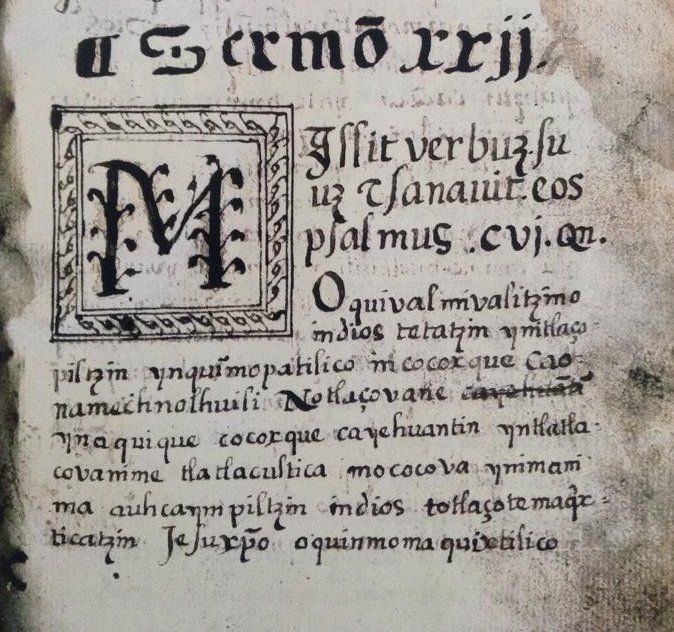 ¶ Sermõ xxij.
Missit verbuʒ su
uʒ ⁊ sanauit. eos
psalmus .cvj. Qn.
O quival mivalitzĩno
in dios tetatzin yn ĩtlaço-
piltzin ynquĩmopatilico in cocoxque ca o-
namechnolhuili Notlaçovane
yn aquique cocoxque ca yehuantin yn tlatla-
covanime tlatlacultica mococova yn imani
ma auh ca yn ipiltzin in dios totlaçotemaqx̃-
ticatzin Jesu xp̃o oquinmomaquixtilico